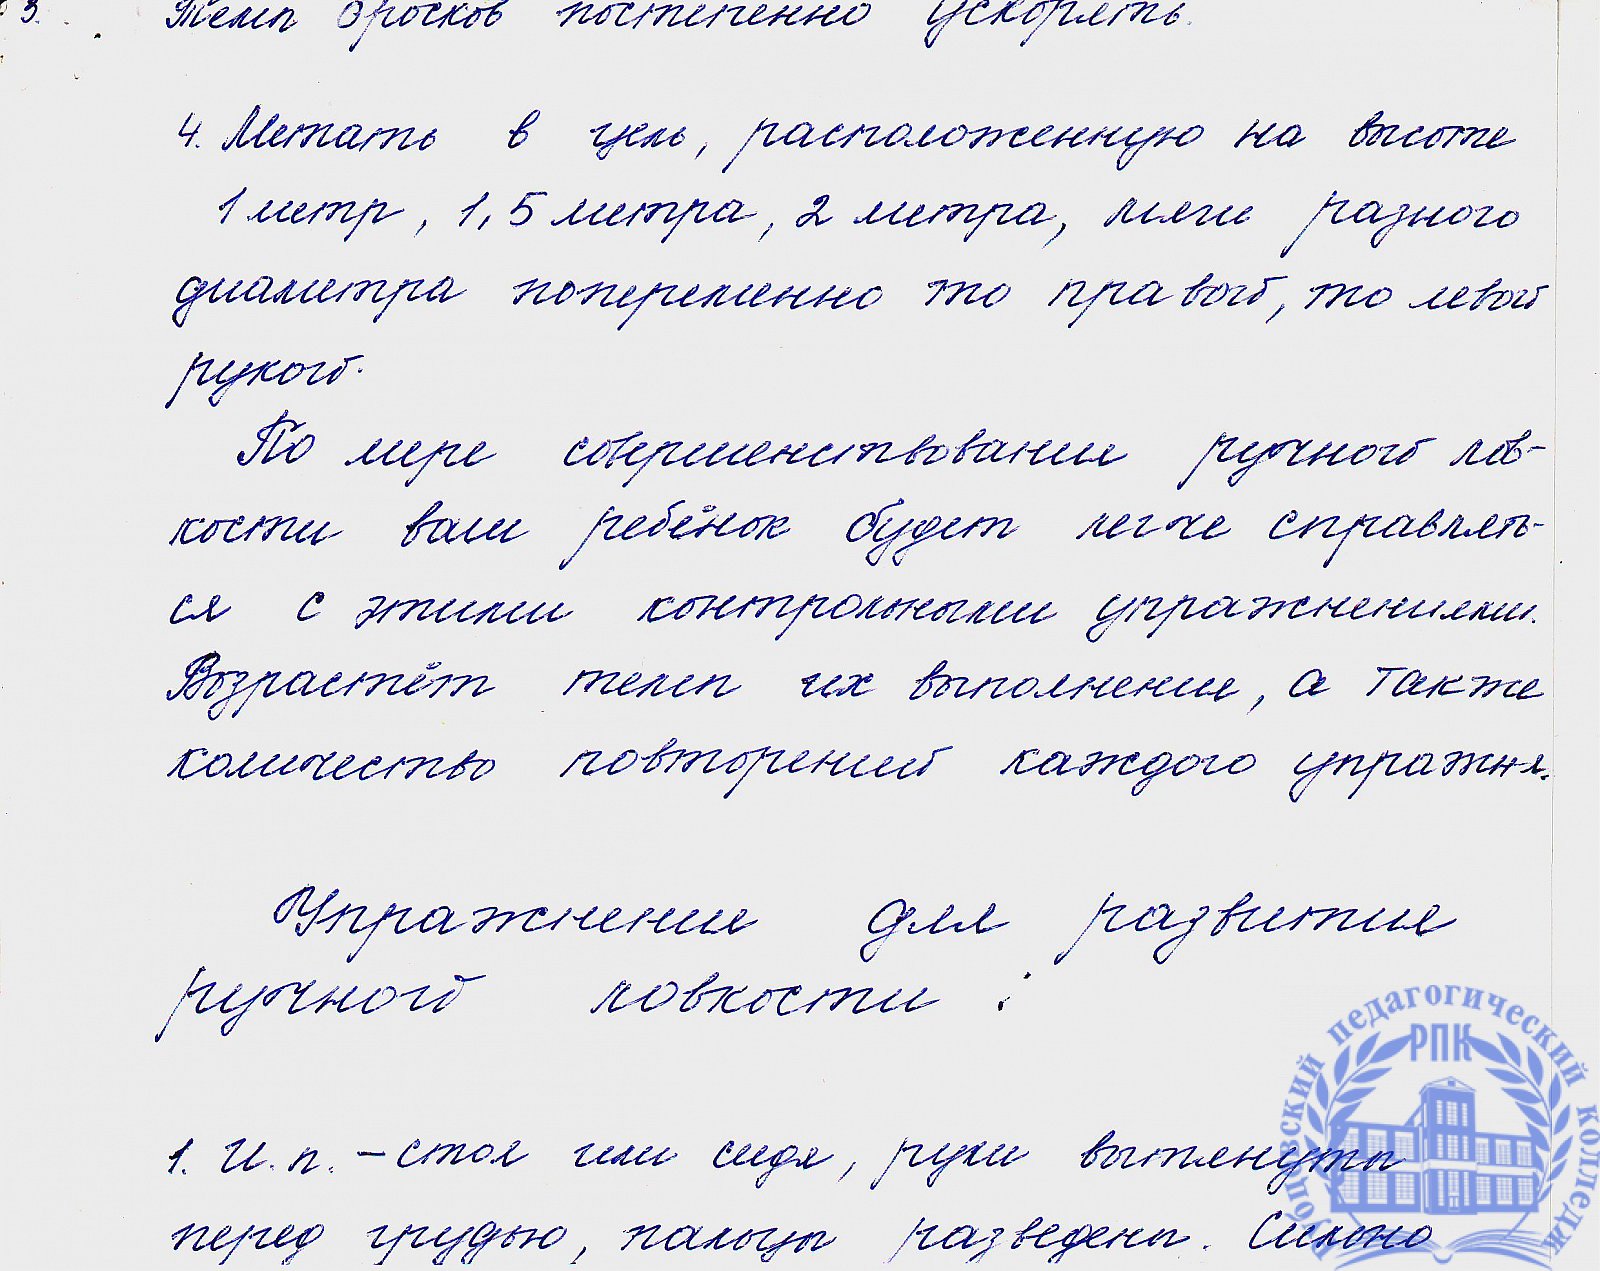 3.
Темп бросков постепенно ускорять.
4. Метать в цель, расположенную на высоте
1 метр, 1,5 метра, 2 метра, мячи разного
диаметра попеременно то правой, то левой
рукой.
По мере совершенствования ручной лов-
кости ваш ребёнок будет легче справлять-
ся с этими контрольными упражнениями.
Возрастёт темп их выполнения, а также
количество повторений каждого упражн-я.
Упражнения для развития
ручной ловкости :
1. И.п. – стоя или сидя, руки вытянуты
перед грудью, пальцы разведены. Сильно
педагогический колледж
РПК